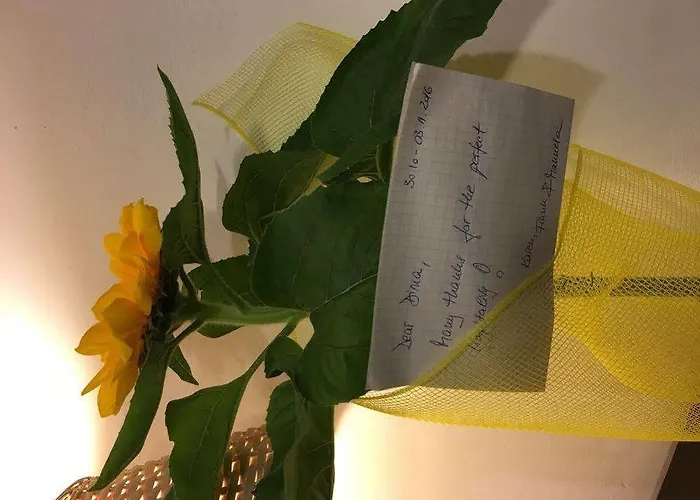 30.10 - 03.11.2016
Dear Dina,
Many thanks for the perfect
hospitality!
Karen, Frank &